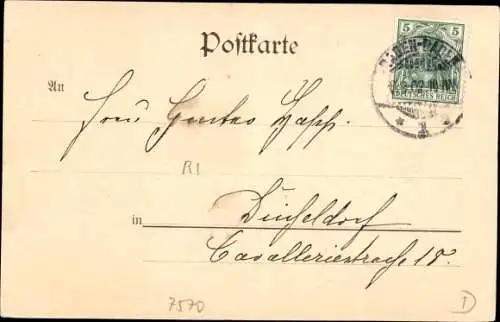 5 5
Postkarte
BADEN-BADEN
DEUTSCHES REICH
An
Herrn Gustav Happ.
R1
in Düsseldorf
Cavalleriestrasse 18.
7570
I